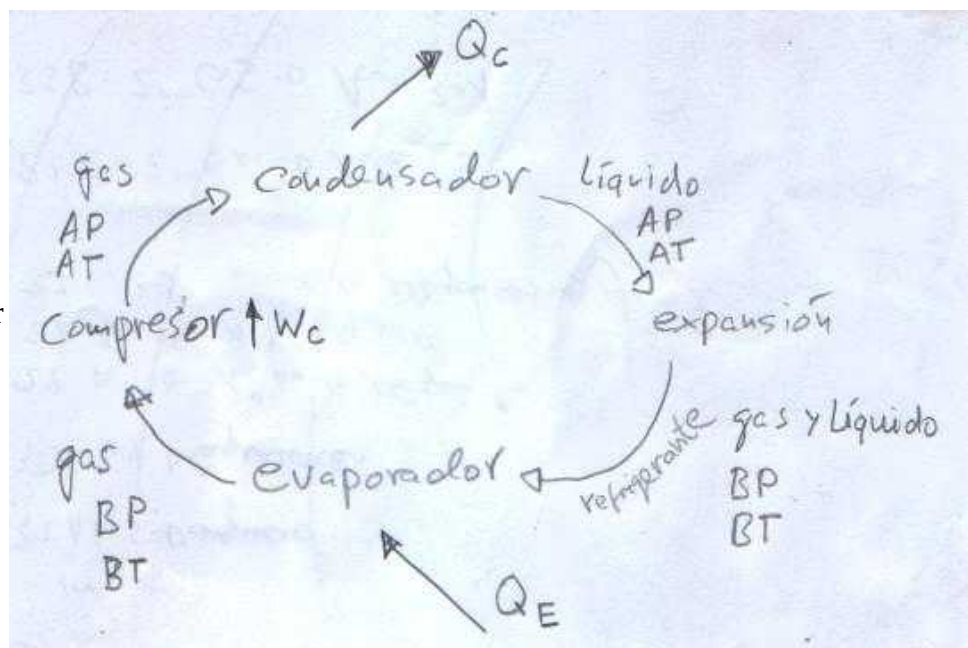 Qc
gas
AP
AT
condensador
líquido
AP
AT
compresor Wc
expansión
refrigerante
gas y líquido
BP
BT
evaporador
gas
BP
BT
QE